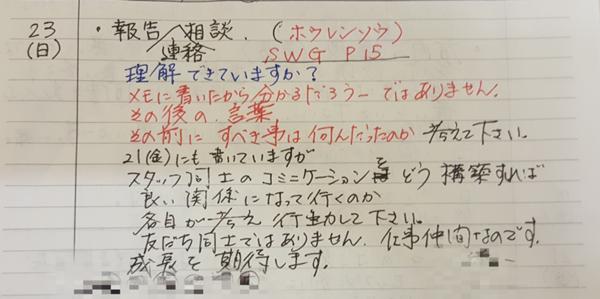 23
(日)
・報告 相談. (ホウレンソウ)
連絡 SWG P15
理解できていますか?
メモに書いたから分かるだろうーではありません.
その後の.言葉
その前に すべき事は何んだったのか 考えて下さい。
21(金)にも書いていますが
スタッフ同士のコミニケーションを どう構築すれば
良い関係になって行くのか
各自が考え 行動して下さい。
友だち同士ではありません. 仕事仲間なのです.
成長を期待します.